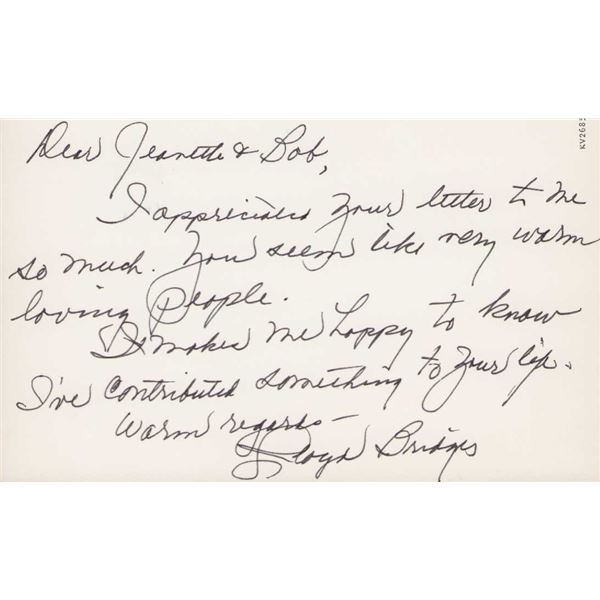 Dear Jeanette & Bob,
I appreciated your letter to me
so much. You seem like very warm
loving people.
It makes me happy to know
I've contributed something to your life.
Warm regards —
Lloyd Bridges
KV268